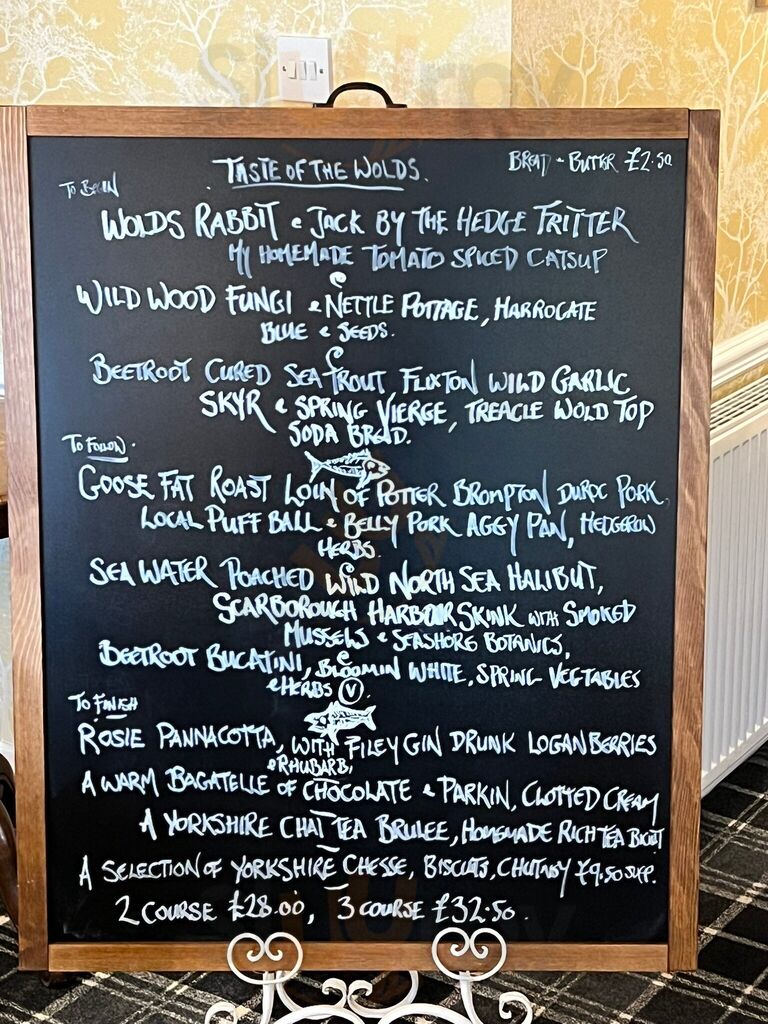 TASTE OF THE WOLDS.
BREAD - BUTTER £2.50
TO BEGIN
WOLDS RABBIT & JACK BY THE HEDGE FRITTER
MY HOMEMADE TOMATO SPICED CATSUP
WILD WOOD FUNGI & NETTLE POTTAGE, HARROGATE
BLUE & SEEDS.
BEETROOT CURED SEA TROUT FLIXTON WILD GARLIC
SKYR & SPRING VIERGE, TREACLE WOLD TOP
SODA BREAD.
TO FOLLOW.
GOOSE FAT ROAST LOIN OF POTTER BROMPTON DUROC PORK
LOCAL PUFF BALL & BELLY PORK AGGY PAN, HEDGEROW
HERBS.
SEA WATER POACHED WILD NORTH SEA HALIBUT,
SCARBOROUGH HARBOUR SKINK WITH SMOKED
MUSSELS & SEASHORE BOTANICS,
BEETROOT BUCATINI, BLOOMIN WHITE, SPRING VEGTABLES
& HERBS V.
TO FINISH
ROSIE PANNACOTTA, WITH FILEY GIN DRUNK LOGANBERRIES
& RHUBARB,
A WARM BAGATELLE OF CHOCOLATE & PARKIN, CLOTTED CREAM
A YORKSHIRE CHAI TEA BRULEE, HOMEMADE RICH TEA BISCUIT
A SELECTION OF YORKSHIRE CHESSE, BISCUITS, CHUTNEY £9.50 SUPP.
2 COURSE £28.00, 3 COURSE £32.50.